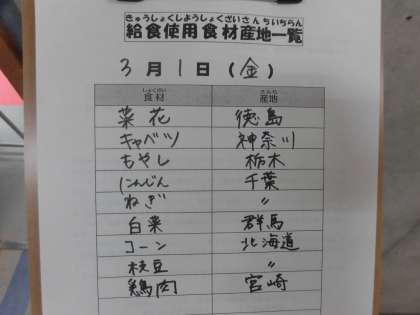 きゅうしょくしようしょくざいさんちいちらん
給食使用食材産地一覧
3月1日(金)
しょくざい さんち
食材 産地
菜花 徳島
キャベツ 神奈川
もやし 栃木
にんじん 千葉
ねぎ 〃
白菜 群馬
コーン 北海道
枝豆 〃
鶏肉 宮崎